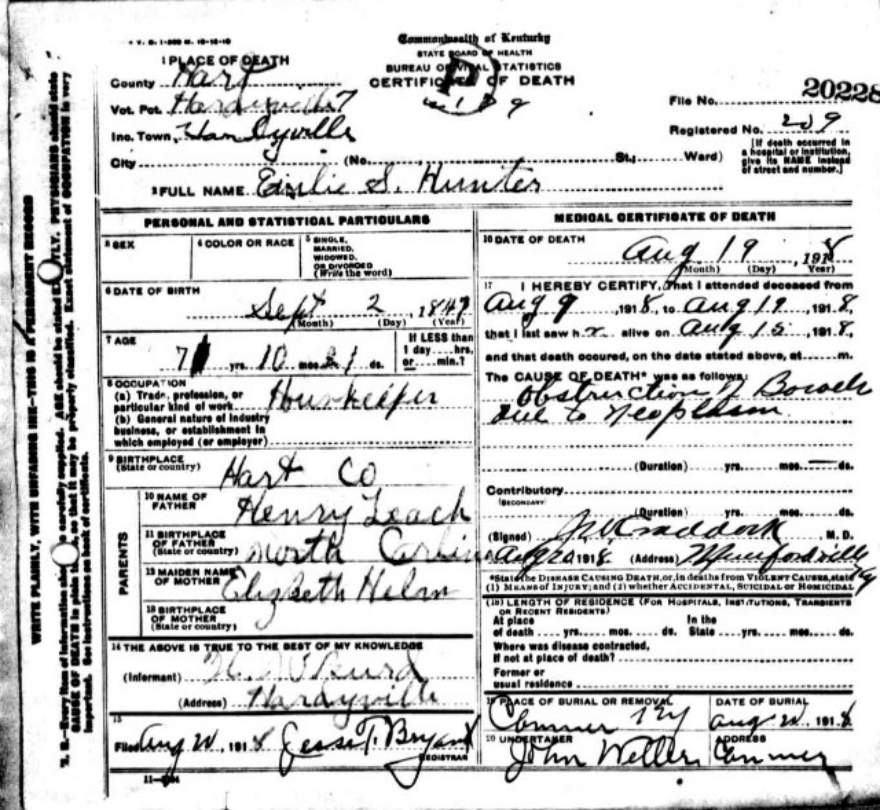 V. S. 1-
Commonwealth of Kentucky
STATE BOARD OF HEALTH
BUREAU OF VITAL STATISTICS
CERTIFICATE OF DEATH
1 PLACE OF DEATH
County Hart
Vot. Pct. Hardyville 7
Inc. Town Hardyville
City (No. St.; Ward)
File No. 20228
Registered No. 209
[If death occurred in a hospital or institution, give its NAME instead of street and number.]
2 FULL NAME S. Hunter
PERSONAL AND STATISTICAL PARTICULARS
3 SEX
4 COLOR OR RACE
5 SINGLE, MARRIED, WIDOWED, OR DIVORCED (Write the word)
6 DATE OF BIRTH
Sept 2, 1847
(Month) (Day) (Year)
7 AGE
yrs. 10 mos. ds.
If LESS than 1 day hrs. or min.?
8 OCCUPATION
(a) Trade, profession, or particular kind of work Houskeeper
(b) General nature of industry business, or establishment in which employed (or employer)
9 BIRTHPLACE (State or country)
Hart Co
PARENTS
10 NAME OF FATHER
Henry Leach
11 BIRTHPLACE OF FATHER (State or country)
North
12 MAIDEN NAME OF MOTHER
Elizbeth Helm
13 BIRTHPLACE OF MOTHER (State or country)
14 THE ABOVE IS TRUE TO THE BEST OF MY KNOWLEDGE
(Informant)
(Address) Hardyville
15
Filed Aug 20, 1918 Jesse T. Bryant
REGISTRAR
MEDICAL CERTIFICATE OF DEATH
16 DATE OF DEATH
Aug 19, 1918
(Month) (Day) Year)
17 I HEREBY CERTIFY, That I attended deceased from
Aug 9, 1918, to Aug 19, 1918,
that I last saw h alive on Aug 15, 1918,
and that death occured, on the date stated above, at m.
The CAUSE OF DEATH* was as follows:
Obstruction of Bowels
due to Neoplasm
(Duration) yrs. mos. ds.
Contributory
(SECONDARY)
(Duration) yrs. mos. ds.
(Signed) Craddock, M. D.
Aug 20 1918. (Address) Munfordville Ky
*State the DISEASE CAUSING DEATH, or, in deaths from VIOLENT CAUSES, state
(1) MEANS of INJURY; and (2) whether ACCIDENTAL, SUICIDAL or HOMICIDAL
(18) LENGTH OF RESIDENCE (FOR HOSPITALS, INSTITUTIONS, TRANSIENTS
OR RECENT RESIDENTS)
At place of death yrs. mos. ds. In the State yrs. mos. ds.
Where was disease contracted,
If not at place of death?
Former or
usual residence
19 PLACE OF BURIAL OR REMOVAL
Ky
DATE OF BURIAL
Aug 20, 1918
20 UNDERTAKER
John Weller
ADDRESS
WRITE PLAINLY, WITH UNFADING INK—THIS IS A PERMANENT RECORD
N. B.—Every item of information should be carefully supplied. AGE should be stated EXACTLY. PHYSICIANS should state
CAUSE OF DEATH in plain terms, so that it may be properly classified. Exact statement of OCCUPATION is very
important. See instructions on back of certificate.